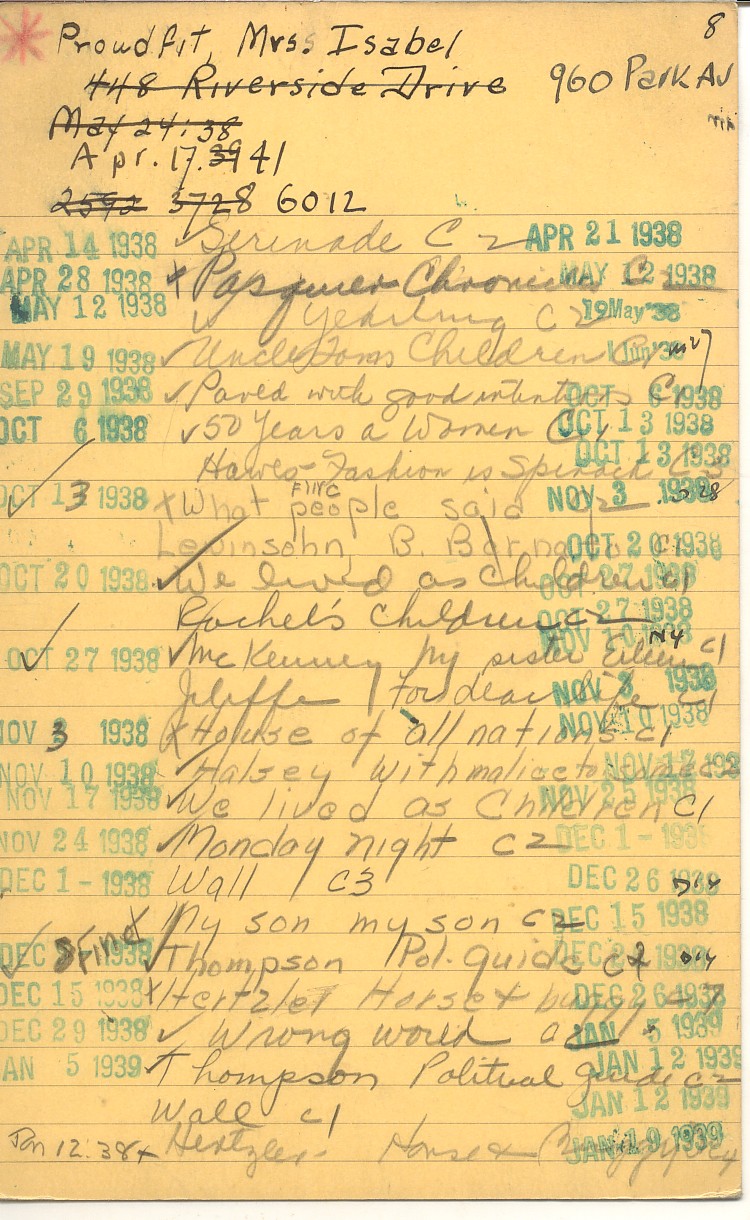 8
Proudfit, Mrs. Isabel
448 Riverside Drive 960 Park Av
May 24:38
Apr. 17.39 41
2592 3728 6012
APR 14 1938 ✓ Serenade C2 APR 21 1938
APR 28 1938 x Pasquier Chronicles C2 MAY 12 1938
MAY 12 1938 ✓ Yearling C2 19 May '38
MAY 19 1938 ✓ Uncle Toms Children C1 1 Jun '38
SEP 29 1938 ✓ Paved with good intentions C1 OCT 6 1938
OCT 6 1938 ✓ 50 Years a Women C1 OCT 13 1938
Hawes-Fashion is Spinach C3 OCT 13 1938
OCT 13 1938 x What people said C2 NOV 3 1938
FINE
Lewinsohn, B. Barnaby C1 OCT 20 1938
OCT 20 1938 ✓ We lived as Children C1 OCT 27 1938
Rachel's Children C2 OCT 27 1938
OCT 27 1938 ✓ McKenney My sister Eileen C1 NOV 10 1938
Jeliffe For dear life C1 NOV 3 1938
NOV 3 1938 x House of all nations C1 NOV 10 1938
NOV 10 1938 ✓ Halsey With malice to some C2 NOV 17 1938
NOV 17 1938 ✓ We lived as Children C1 NOV 25 1938
NOV 24 1938 ✓ Monday night C2 DEC 1 - 1938
DEC 1 - 1938 Wall C3 DEC 26 1938
My son my son C2 DEC 15 1938
DEC 8 1938 Find ✓ Thompson Pol. guide C2 DEC 22 1938
DEC 15 1938 x Hertzler Horse & buggy DEC 26 1938
DEC 29 1938 ✓ Wrong world JAN 5 1939
JAN 5 1939 ✓ Thompson Political guide C2 JAN 12 1939
Wall C1 JAN 12 1939
Jan 12:38 x Hertzler Horse & Buggy JAN 19 1939